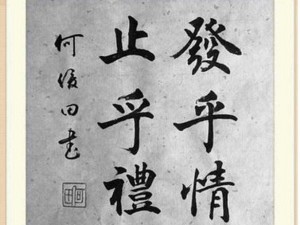 發乎情
止乎禮
何浚田書